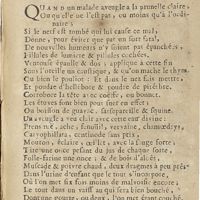 QUAND un malade aveugle a la prunelle claire,
Ou qu'elle ne l'est pas, ou moins qu'à l'ordi-
naire ;
Si le nerf est tombé qui lui cause ce mal,
Donne, pour éviter que par un sort fatal,
De nouvelles humeurs n'y soient pas épanchées,
Pilules de lumiere & pilules cochées.
Ventouse épaule & dos, applique à cette fin
Sous l'oreille un cautique, & qu'on mache le
Ou bien le pouliot : Et dans le nez fois
Et poudre d'hellebore & poudre de prêthre.
Corrobore la tête avec coeffe, ou bonnet.
Les étuves font bien pour
Ou boisson de guaiac, sarsepareille & squine.
Un aveugle à veu clair avec cette eau divine :
Prens rue, eufraise, vervaine, chamædrys,
Caryophillata, centinode sans prix,
Mouton, éclaire, œillet, avec la sauge forte ;
Tire une once pesant du jus de chaque sorte,
Folle-farine une once ; & de bois d'aloès,
Muscade & poivre chaud, deux dragmes à peu près
Dans l'urine d'enfant que le tout s'incorpore,
Où l'on met six fois moins de malvoisie encore :
Le tout dans un vaisf au qui sera bien bouché
Dont une goutte, ou deux, l'on met étant couché,